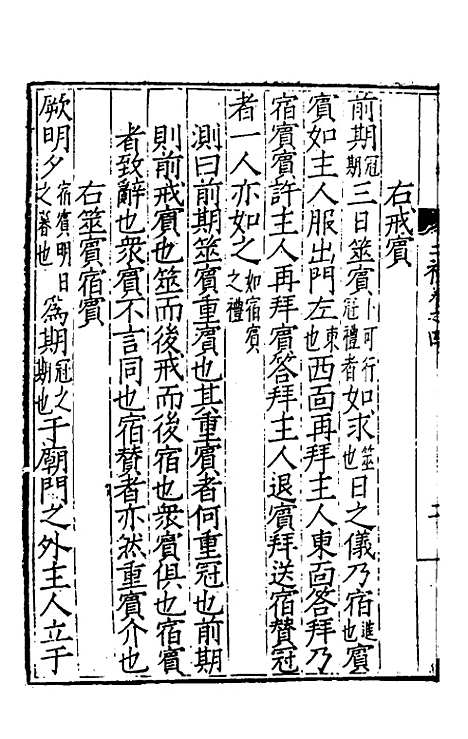 右戒賓
前期冠期三日筮賓卜可行冠禮者如求筮也日之儀乃宿進也賓
賓如主人服出門左東也西面再拜主人東面答拜乃
宿賓賓許主人再拜賓答拜主人退賓拜送宿贊冠
者一人亦如之如宿賓之禮
測曰前期筮賓重賓也其重賓者何重冠也前期
則前戒賓也筮而後戒而後宿也衆賓俱也宿賓
者致辭也衆賓不言同也宿贊者亦然重賓介也
右筮賓宿賓
厥明夕宿賓明日之暮也爲期冠之期也于廟門之外主人立于